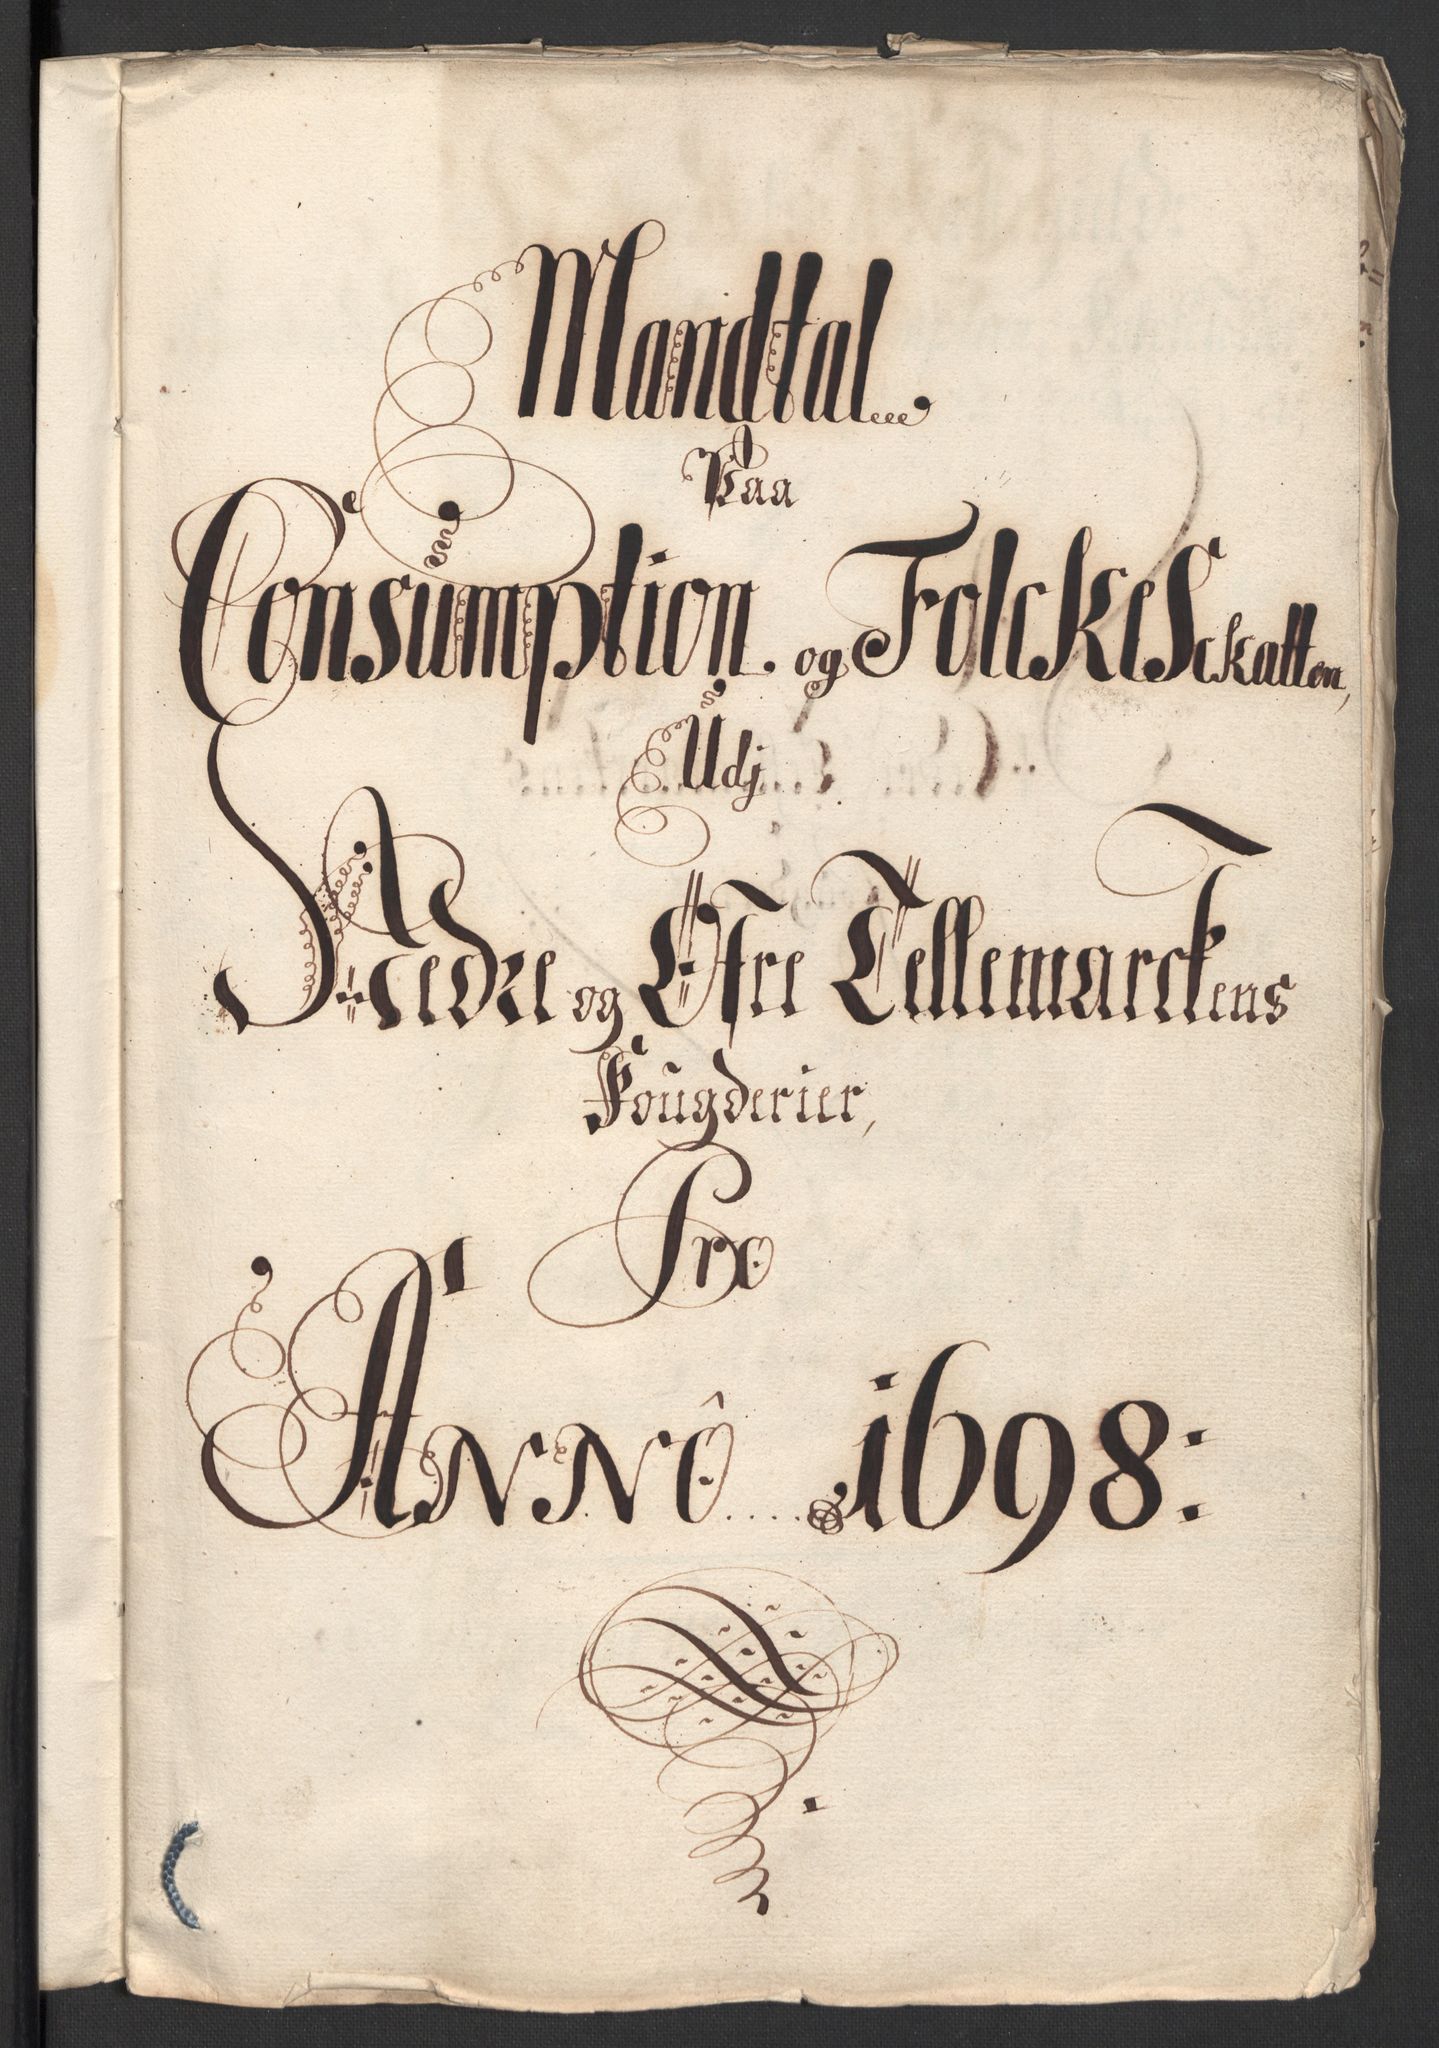 Mandtal
Paa
Consumption og FolckeSckatten,
Udj
Nedre og Øfre Tellemarckens
Fougderier,
Pro
Annô 1698: